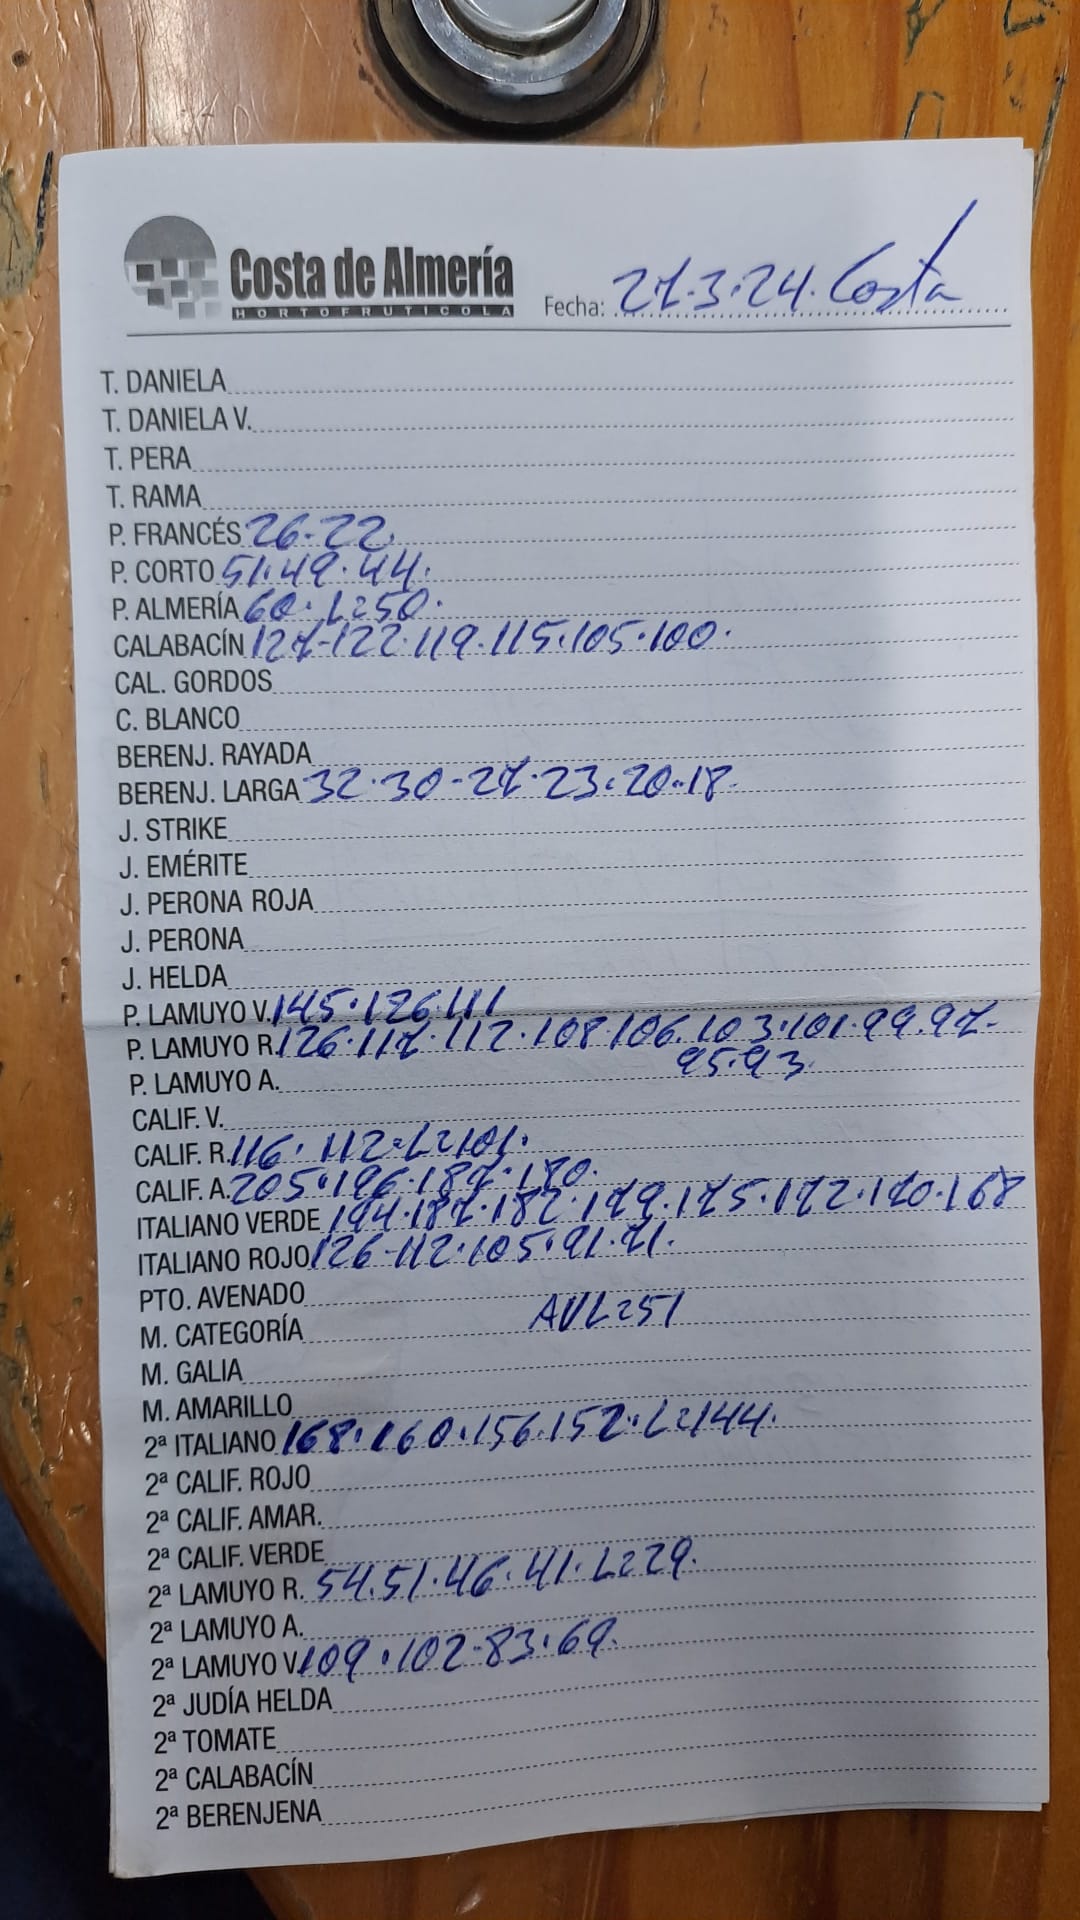 Costa de Almería
HORTOFRUTICOLA
Fecha: 27.3.24. Costa
T. DANIELA
T. DANIELA V.
T. PERA
T. RAMA
P. FRANCÉS 26-22.
P. CORTO 51.49.44.
P. ALMERÍA 60. L=50.
CALABACÍN 127-122.119.115.105.100.
CAL. GORDOS
C. BLANCO
BERENJ. RAYADA
BERENJ. LARGA 32.30-27.23.20.18.
J. STRIKE
J. EMÉRITE
J. PERONA ROJA
J. PERONA
J. HELDA
P. LAMUYO V. 145.126.111
P. LAMUYO R. 126.117.112.108.106.103.101.99.97-
95.93
P. LAMUYO A.
CALIF. V.
CALIF. R. 116. 112-L=101.
CALIF. A. 205.196.187.180.
ITALIANO VERDE 194.187.182.179.175.172.170.168
ITALIANO ROJO 126-112.105.91.71.
PTO. AVENADO
AVL=51
M. CATEGORÍA
M. GALIA
M. AMARILLO
2ª ITALIANO 168.160.156.152.L=144.
2ª CALIF. ROJO
2ª CALIF. AMAR.
2ª CALIF. VERDE
2ª LAMUYO R. 54.51.46.41.L=29.
2ª LAMUYO A.
2ª LAMUYO V. 109.102-83.69.
2ª JUDÍA HELDA
2ª TOMATE
2ª CALABACÍN
2ª BERENJENA